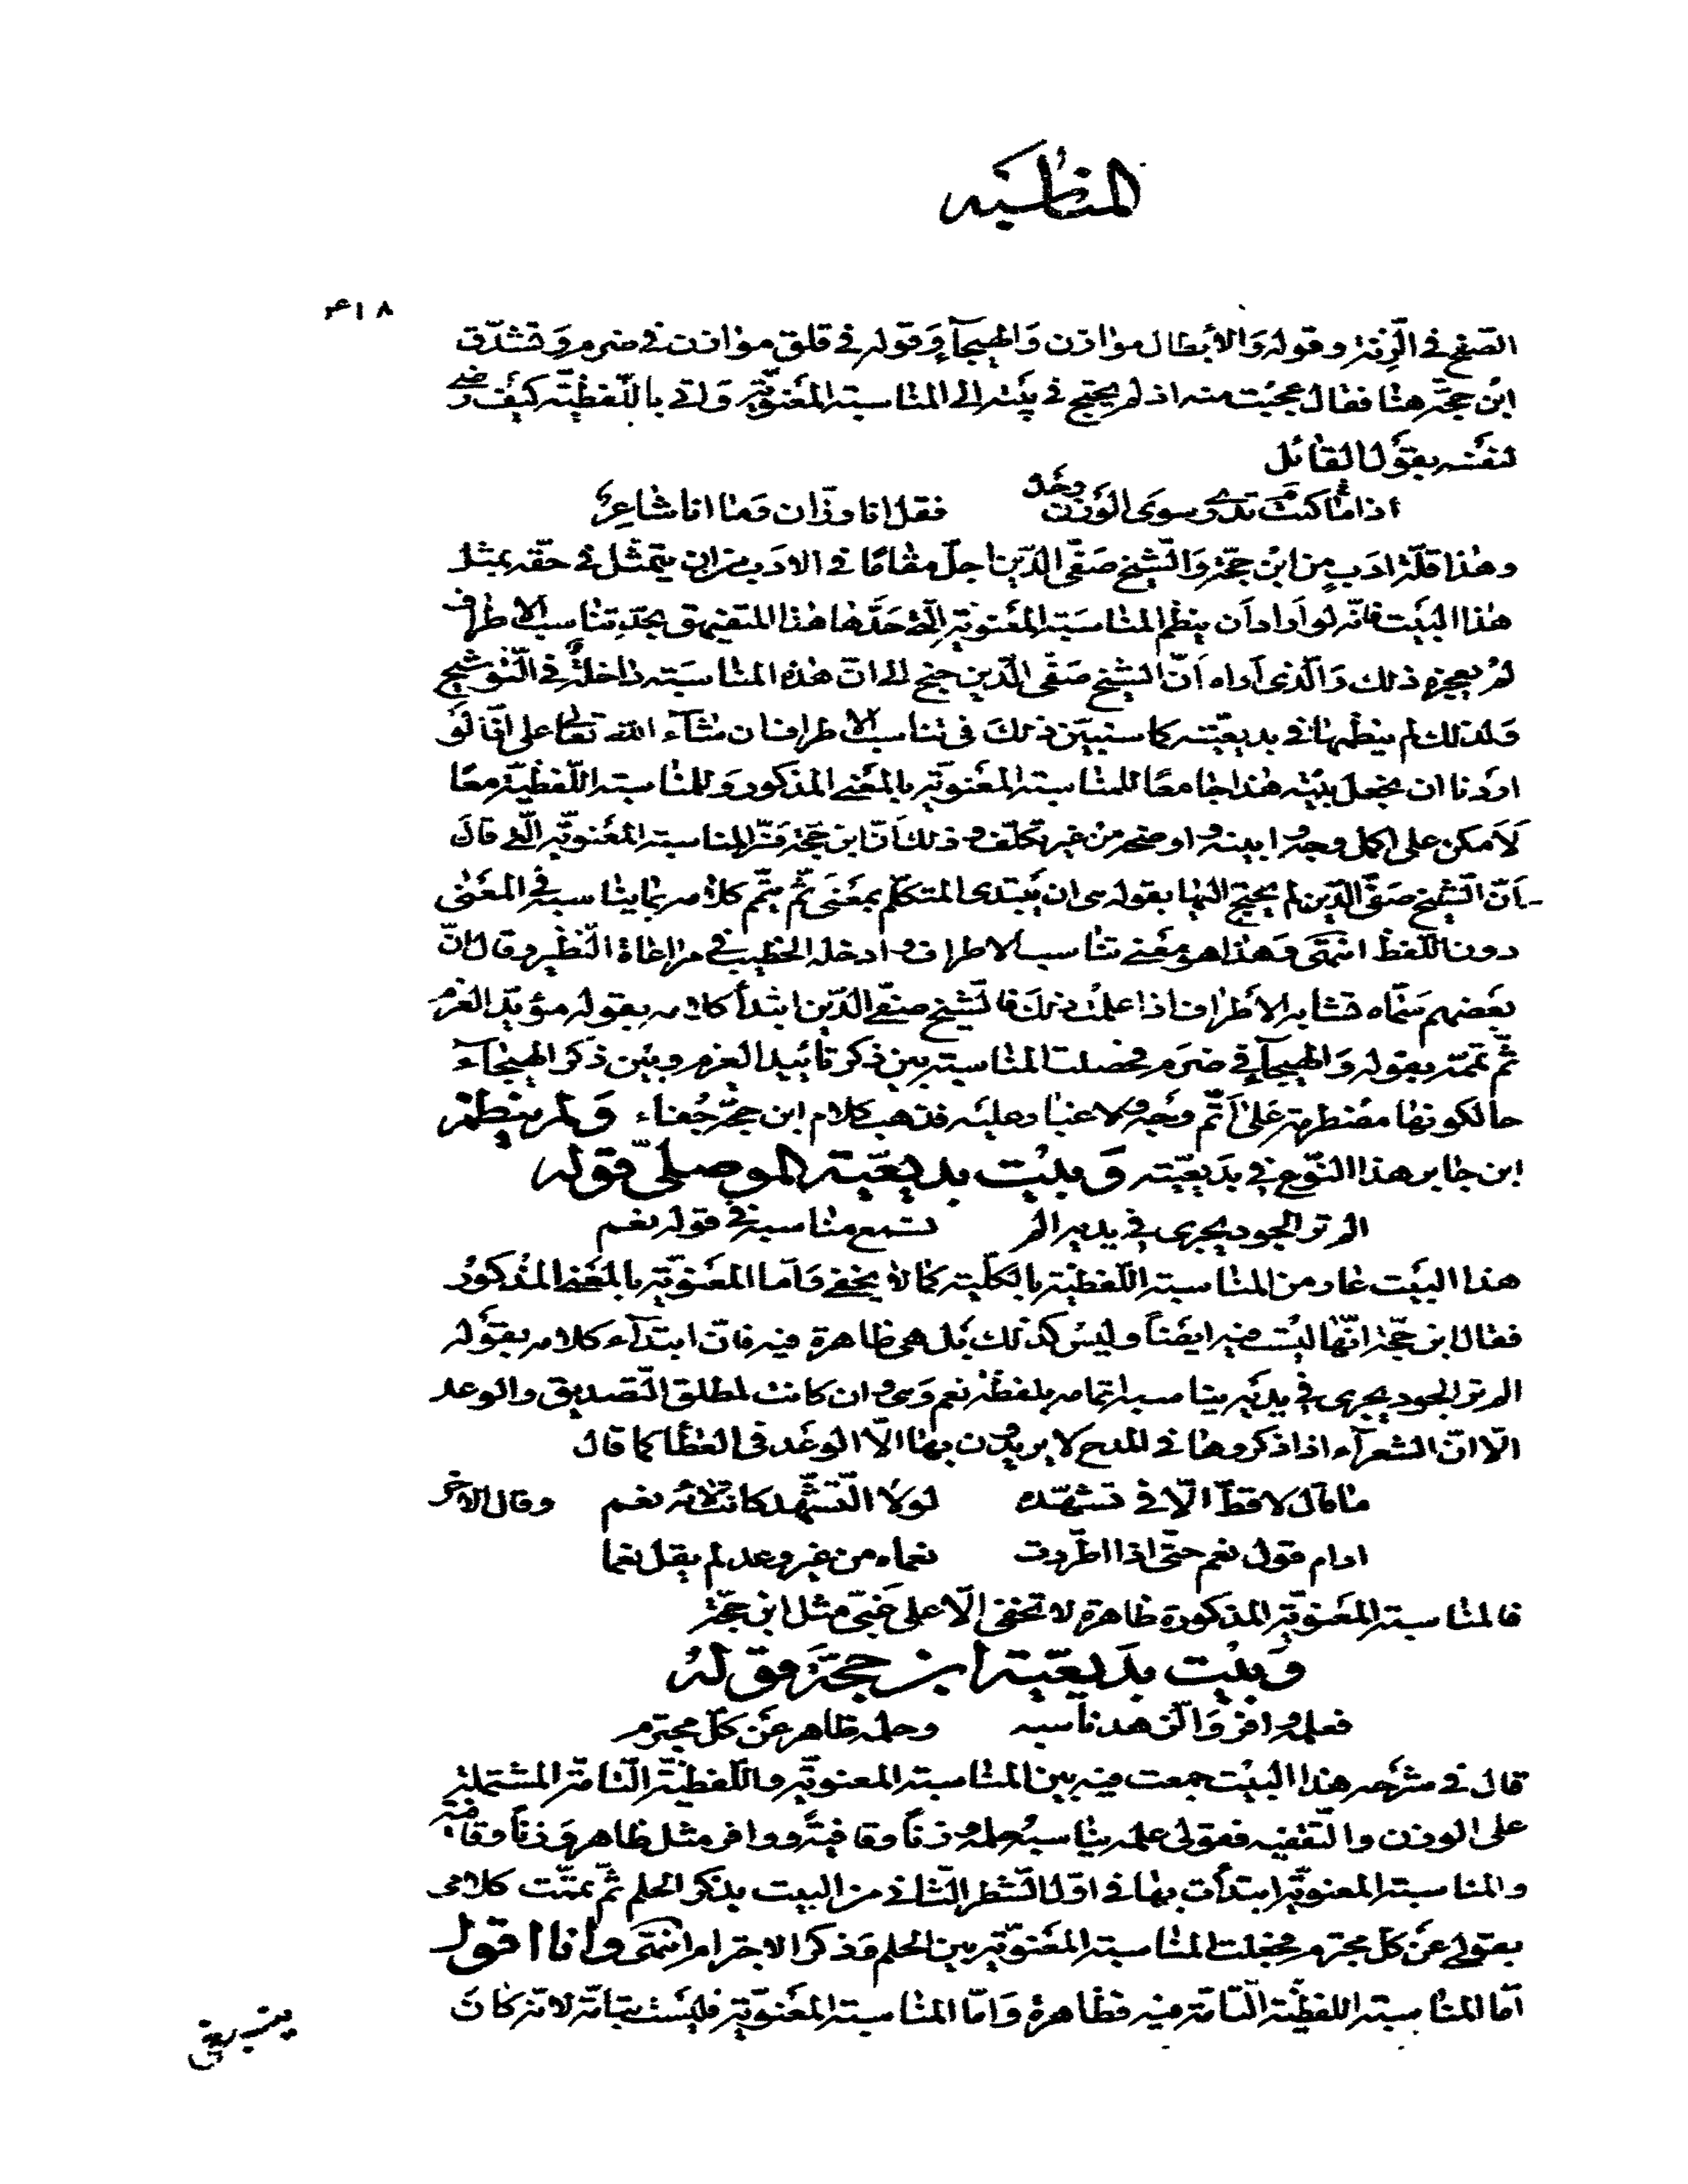 المناسبه
۴۱۸
الصّفح في الزنة وقوله وَالأبطال موازن وَالهيجآءِ وَقوله في قلق موازن في ضرم وَتشدّق
ابْن حجّة هنا فقال عجبْت منه اذ لم يحتج في بيْته الى المناسبة المعْنويّة وَاتى باللّفظيّة كيْف رضى
لنفْسه بقوْل القائل
اذا ما كنْت تدرى سوى الوَزن وحْده فقل انا وزّان وَما انا شاعِر
وهذا قلّة ادَبٍ مِن ابْن حجّة وَالشّيخ صَفّى الدّين اجلّ مقامًا فى الادَب من ان يتمثّل فى حقّه بمثل
هذا البيْت فانّه لو اَراد اَن ينظم المناسَبة المعْنويّة الّتى حَدّها هذا المتفيهق بحدّ تناسب الاطراف
لمْ يعجزه ذلك وَالّذى اَراه اَنّ الشيخ صَفّى الدّين جنح الى انّ هذه المناسَبَة داخلةٌ فى التّوْشيح
وَلذلك لم ينظمها فى بديعيّته كما سنبيّن ذلكَ فى تناسب الاطراف ان شآء اللّه تعالى على انّا لَوْ
اردْنا ان نجعل بيْته هذا جامعًا للمناسبة المعْنويّة بالمعْنى المذكور وَللمناسبة اللّفظيّة معًا
لَاَمكن على اكمل وجهٍ وابينه واوضحه من غير تكلّف وذلك اَنّ ابن حجّة فسّر المناسبة المعْنويّة الّتى قالَ
اَنّ الشّيخ صَفّى الدّين لم يحتج اليْها بقوله هى ان يَبتدى المتكلّم بمعْنىً ثمّ يتمّم كلامه بما يناسبه فى المعْنى
دون اللّفظ انتهى وَهذا هو معْنى تناسب الاطراف وادخله الخطيب فى مراعاة النّظير وقال انّ
بعْضهم سَمّاه تشابه الاَطراف اذا علمْت ذلكَ فالشّيخ صفّى الدّين ابتدأ كلامه بقوله مؤيّد العزم
ثمّ تمّمه بقوله وَالهيجآءِ فى ضرَم فحصلت المناسبة بين ذكر تاْييد العزم وبيْن ذكر الهيْجآء
حال كونها مضْطرمة عَلى اَتمّ وجْه ولاغبار عليْه فذهب كلام ابن حجّة جُفاء وَلم ينظم
ابن جابر هذا النّوْع فى بدَيعيّته وَبيْت بديعيّة الموصلىّ قوله
الم تر الجود يجرى فى يديه الم تسْمع مناسبة فى قوله نعم
هذا البيْت عار من المناسبة اللّفظيّة بالكلّية كما لا يخفى وَامّا المعْنويّة بالمعْنى المذْكور
فقال ابن حجّة انّها ليْست فيه ايضًا وليس كذلك بَل هى ظاهرة فيه فانّ ابتدآء كلامه بقوْله
الم تر الجود يجرى فى يديْه يناسبه اتمامه بلفظة نعم وَهى وان كانت لمطلق التّصديق والوعد
الّا انّ الشعرآء اذا ذكروها فى المدح لا يريدون بها الّا الوعْد فى العطأ كما قال
ما قال لا قطّ الّا فى تشهّده لولا التّشهّد كانت لاؤه نعم وقال الاٰخر
ادام قول نعم حتّى اذا اطّردت نعماه من غير وعد لم يقل نعما
فالمناسبة المعْنويّة المذكورة ظاهرة لا تخفى الّا على غبىّ مثل ابن حجّة
وَبيْت بدَيعيّة ابن حجّة قولهُ
فعلمه وافر وَالزّهد ناسبه وحلمه ظاهر عَن كلّ مجترم
قال فى شرْحه هذا البيْت جمعت فيه بين المناسبة المعنويّة واللّفظيّة التّامّة المشتملة
على الوزن والتّقفيه فقولى علمه يناسبُه حلمه وزناً وقافيةً ووافر مثل ظاهر وَزناً وقافية
والمناسبة المعنويّة ابتدأت بها فى اوّل الشّطر الثّانى من البيت بذكر الحلم ثمّ تمّمت كلامى
بقولى عَن كلّ مجترم فحصلت المناسبة المعْنويّة بين الحلم وَذكر الاجترام انتهى وانا اقول
امّا المناسبة اللفظيّة التّامّة فيه فظاهرة وَامّا المناسبة المعْنويّة فليْست بتامّة لانّه كان